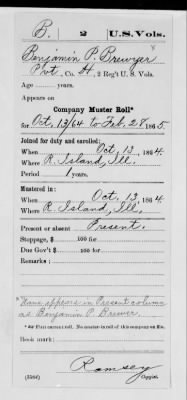 B. 2 U.S. Vols.
Benjamin P. Brewyer
Pvt, Co. H, 2 Reg't U. S. Vols.
Age ...... years.
Appears on
Company Muster Roll*
for Oct. 13/64 to Feb. 28, 1865.
Joined for duty and enrolled:
When Oct. 13, 1864.
Where R. Island, Ill.
Period 1 years.
Mustered in:
When Oct. 13, 1864
Where R. Island, Ill.
Present or absent Present.
Stoppage, $ 100 for
Due Gov't $ 100 for
Remarks:
Name appears in Present column
as Benjamin P. Brewer.
First current roll. No muster-in roll of this company on file.
Book mark:
Ramsey
Copyist.